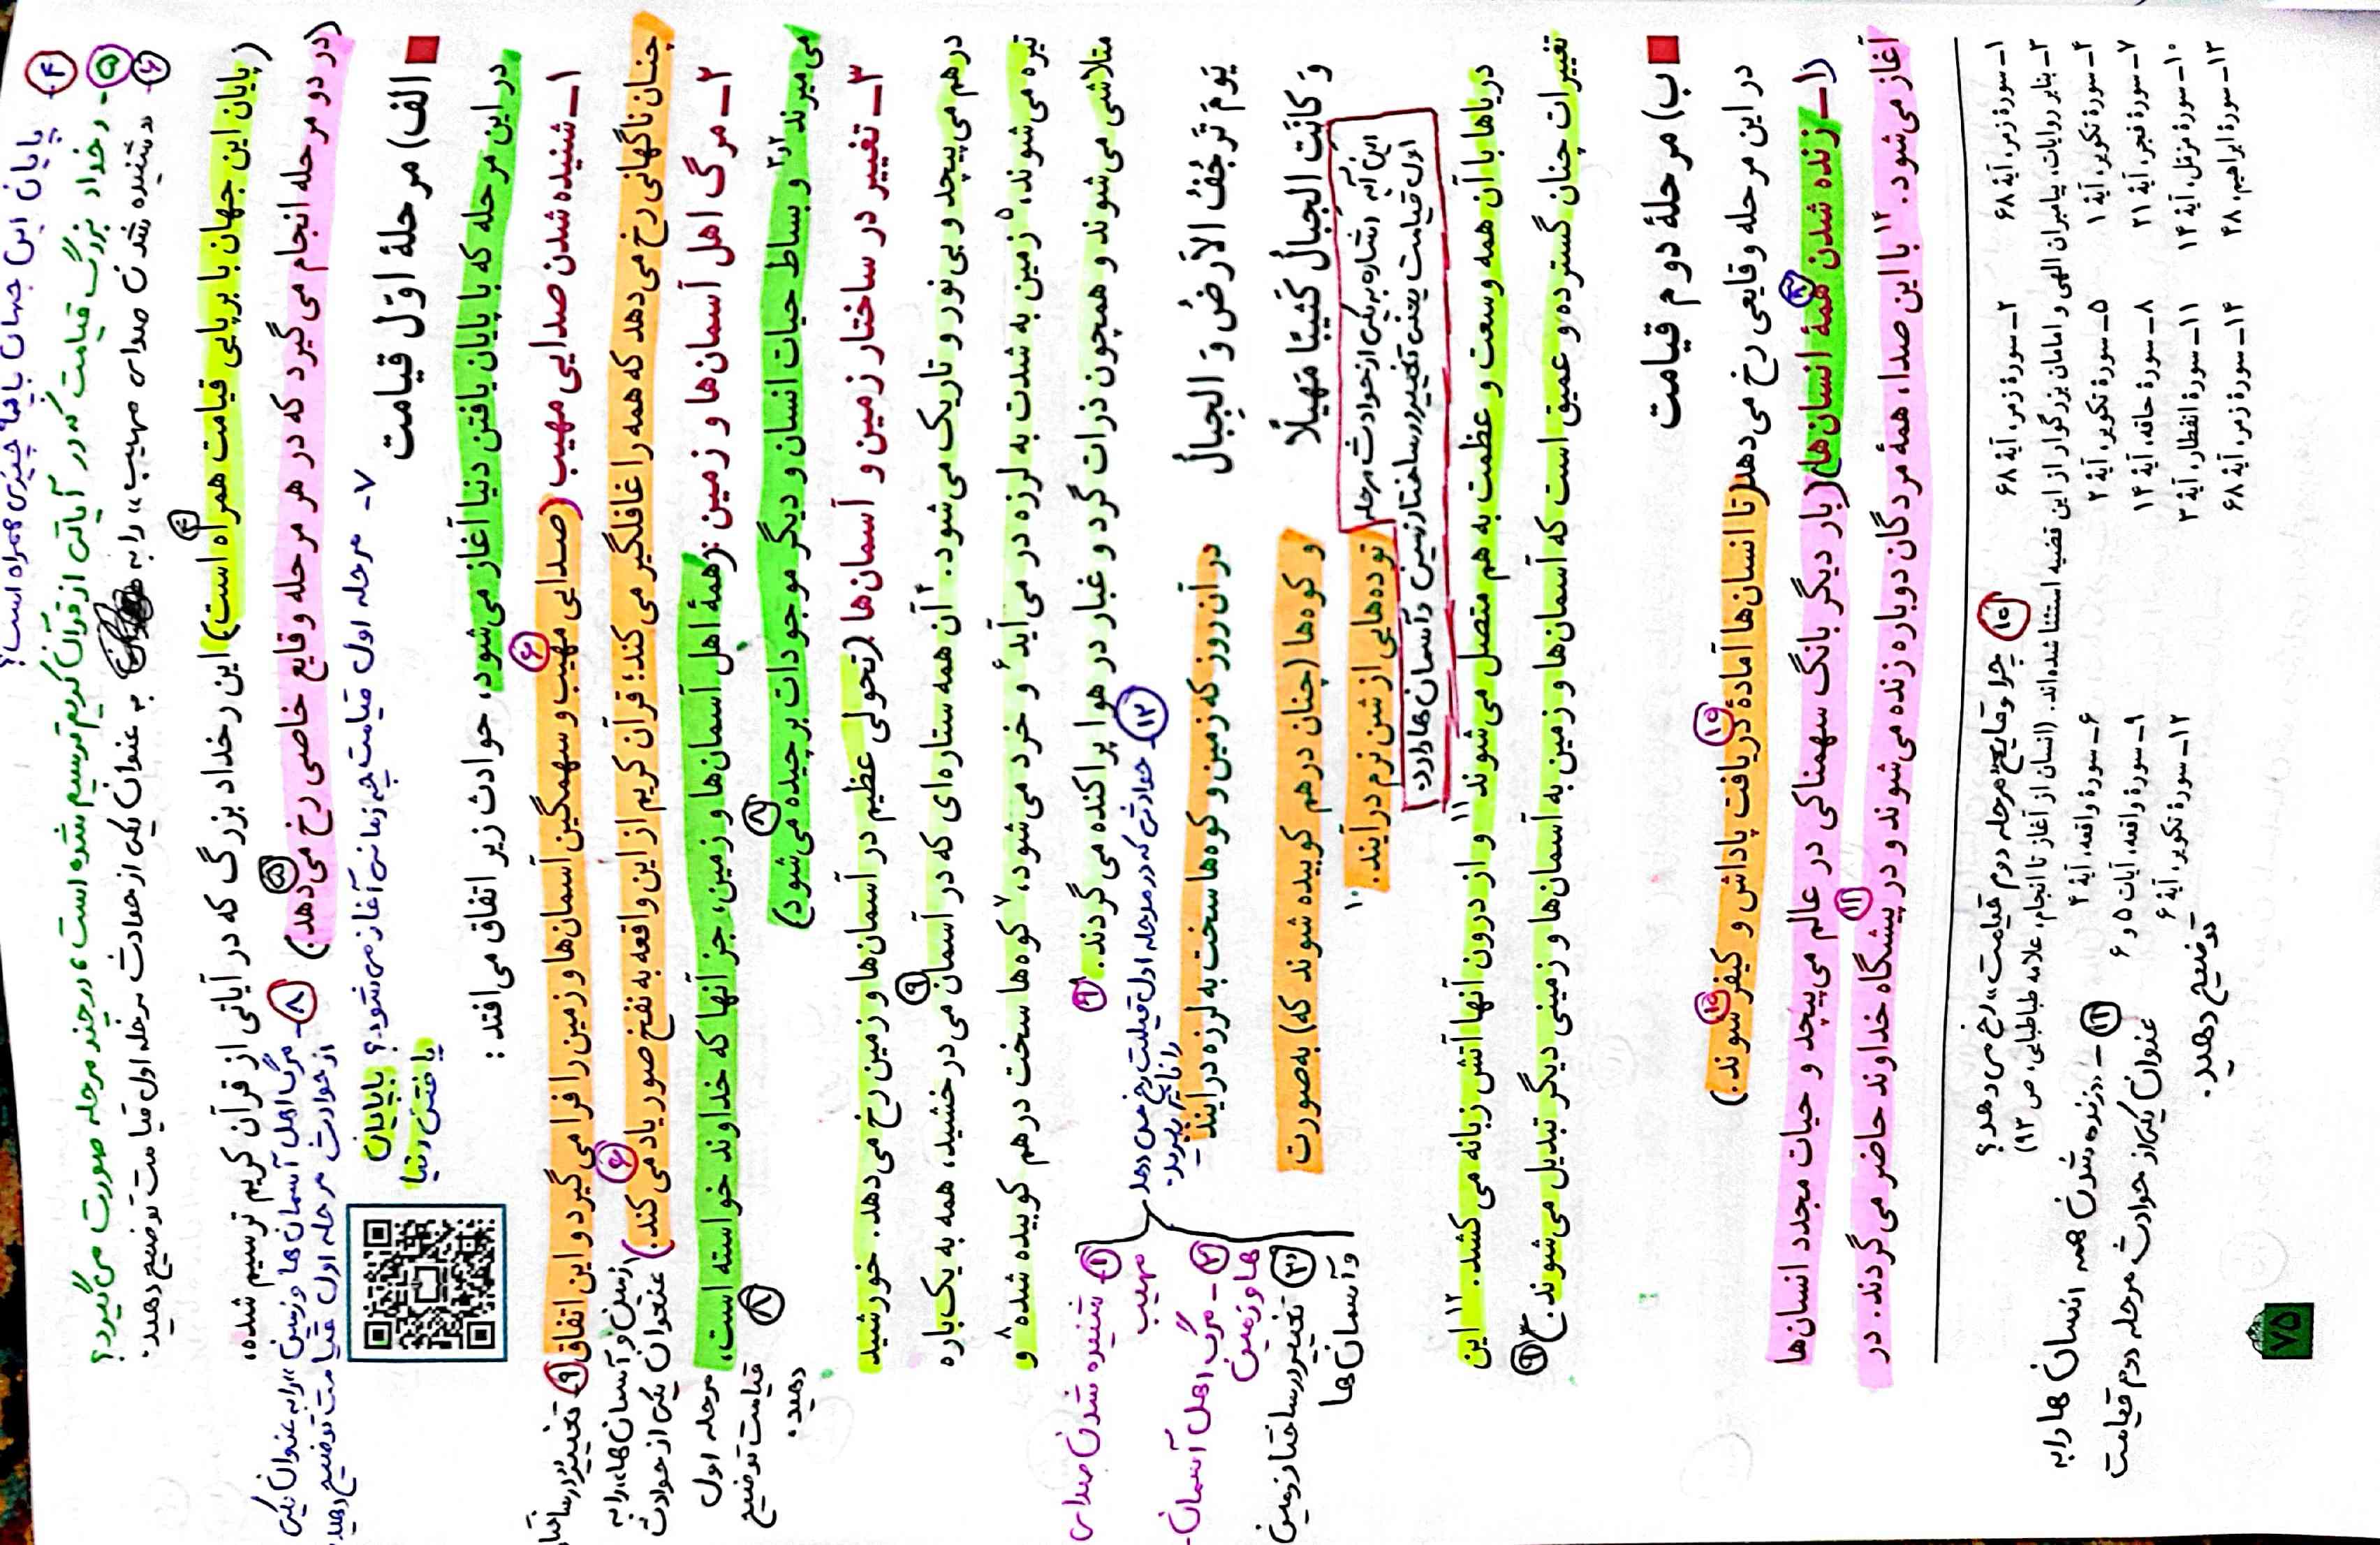 ۴- پایان این جهان با چه چیزی همراه است؟
۵- رخداد بزرگ قیامت که در آیاتی از قرآن کریم ترسیم شده است، در چند مرحله صورت می‌گیرد؟
۶- «شنیده شدن صدای مهیب» را به عنوان یکی از حوادث مرحله اول قیامت توضیح دهید.
(پایان این جهان با برپایی قیامت همراه است) ۴ این رخداد بزرگ که در آیاتی از قرآن کریم ترسیم شده،
(در دو مرحله انجام می‌گیرد که در هر مرحله وقایع خاصی رخ می‌دهد.) ۵
۸- مرگ اهل آسمان‌ها و زمین را به عنوان یکی
از حوادث مرحله اول قیامت توضیح دهید
۷- مرحله اول قیامت چه زمانی آغاز می‌شود؟ با پایان
یافتن دنیا
الف) مرحلۀ اوّل قیامت
در این مرحله که با پایان یافتن دنیا آغاز می‌شود، حوادث زیر اتفاق می‌افتد:
۱ـ شنیده شدن صدایی مهیب (صدایی مهیب و سهمگین آسمان‌ها و زمین را فرا می‌گیرد و این اتفاق
چنان ناگهانی رخ می‌دهد که همه را غافلگیر می‌کند؛ قرآن کریم از این واقعه به نفخ صور یاد می‌کند.)۱ ۶
۹ تغییر در ساختار
زمین و آسمان‌ها را به
عنوان یکی از حوادث
مرحله اول
قیامت توضیح
دهید.
۲ـ مرگ اهل آسمان‌ها و زمین: (همۀ اهل آسمان‌ها و زمین، جز آنها که خداوند خواسته است،
می‌میرند۲و۳ و بساط حیات انسان و دیگر موجودات برچیده می‌شود) ۸
۳ـ تغییر در ساختار زمین و آسمان‌ها (تحولی عظیم در آسمان‌ها و زمین رخ می‌دهد. خورشید
درهم می‌پیچد و بی‌نور و تاریک می‌شود.۴ آن همه ستاره‌ای که در آسمان می‌درخشید، همه به یک‌باره
تیره می‌شوند،۵ زمین به شدت به لرزه در می‌آید۶ و خرد می‌شود،۷ کوه‌ها سخت درهم کوبیده شده۸ و
متلاشی می‌شوند و همچون ذرات گرد و غبار در هوا پراکنده می‌گردند.۹
۱۲- حوادثی که در مرحله اول قیامت رخ می‌دهد
را نام ببرید.
۱- شنیده شدن صدای
مهیب
۲- مرگ اهل آسمان‌
ها و زمین
۳- تغییر در ساختار زمین
و آسمان‌ها
یَومَ تَرجُفُ الاَرضُ وَ الجِبالُ
در آن روز که زمین و کوه‌ها سخت به لرزه درآیند
وَ کانَتِ الجِبالُ کَثیبًا مَهیلًا
و کوه‌ها (چنان درهم کوبیده شوند که) به‌صورت
توده‌هایی از شن نرم درآیند.۱۰
این آیه اشاره به یکی از حوادث مرحله
اول قیامت یعنی تغییر در ساختار زمین و آسمان‌ها دارد.
دریاها با آن همه وسعت و عظمت به هم متصل می‌شوند۱۱ و از درون آنها آتش زبانه می‌کشد.۱۲ این
تغییرات چنان گسترده و عمیق است که آسمان‌ها و زمین به آسمان‌ها و زمینی دیگر تبدیل می‌شوند.۱۳ ۹
ب) مرحلۀ دوم قیامت
در این مرحله وقایعی رخ می‌دهد (تا انسان‌ها آمادۀ دریافت پاداش و کیفر شوند.) ۱۰
(۱ـ زنده شدن همۀ انسان‌ها (بار دیگر بانگ سهمناکی در عالم می‌پیچد و حیات مجدد انسان‌ها
آغاز می‌شود.۱۴ با این صدا، همۀ مردگان دوباره زنده می‌شوند و در پیشگاه خداوند حاضر می‌گردند. در
۱۰ چرا وقایع «مرحله دوم قیامت» رخ می‌دهد؟
۱ـ سورۀ زمر، آیۀ ۶۸
۲ـ سورۀ زمر، آیۀ ۶۸
۳ـ بنابر روایات، پیامبران الهی و امامان بزرگوار از این قضیه استثنا شده‌اند. (انسان از آغاز تا انجام، علامه طباطبایی، ص ۹۳)
۴ـ سورۀ تکویر، آیۀ ۱
۵ـ سورۀ تکویر، آیۀ ۲
۶ـ سورۀ واقعه، آیۀ ۴
۷ـ سورۀ فجر، آیۀ ۲۱
۸ـ سورۀ حاقه، آیۀ ۱۴
۹ـ سورۀ واقعه، آیات ۵ و ۶
۱۰ـ سورۀ مزمل، آیۀ ۱۴
۱۱ـ سورۀ انفطار، آیۀ ۳
۱۲ـ سورۀ تکویر، آیۀ ۶
۱۳ـ سورۀ ابراهیم، ۴۸
۱۴ـ سورۀ زمر، آیۀ ۶۸
۱۱- «زنده شدن همه انسان‌ها را به
عنوان یکی از حوادث مرحله دوم قیامت
توضیح دهید.
۷۵